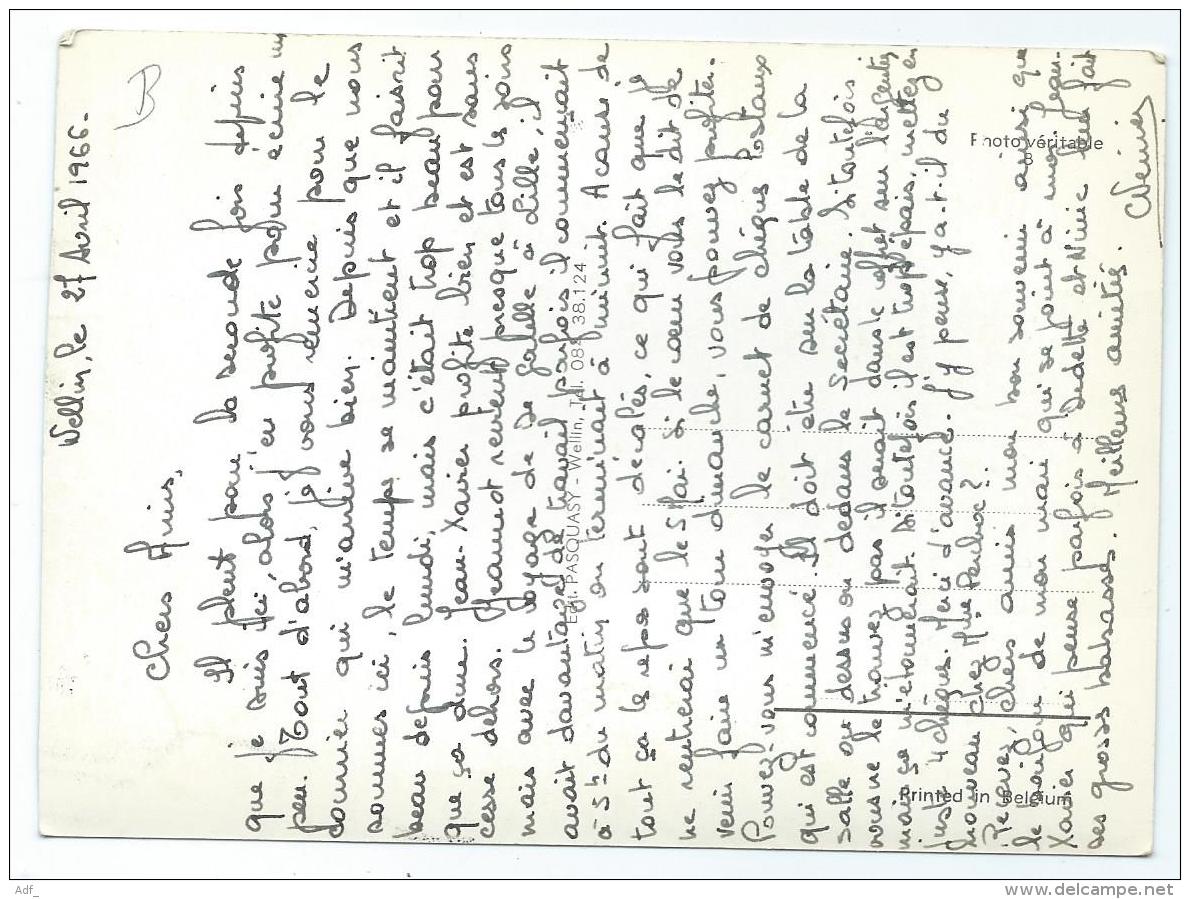 Wellin, le 27 Avril 1966.
Chers Amis,
Il pleut pour la seconde fois depuis
que je suis ici, alors j'en profite pour écrire un
peu. Tout d'abord, je vous remercie pour le
courrier qui m'arrive bien. Depuis que nous
sommes ici, le temps se maintient et il faisait
beau depuis lundi, mais c'était trop beau pour
que ça dure. Jean-Xavier profite bien et est sans
cesse dehors. Jeannot revient presque tous les soirs
mais avec le voyage de Sa Gabelle à Lille, il
avait davantage de travail parfois il commençait
à 5h du matin on terminait à minuit. A cause de
tout ça les repos sont décalés, ce qui fait que je
ne rentrerai que le 5 Mai. Si le cœur vous le dit de
venir faire un tour dimanche, vous pouvez profiter.
Pouvez-vous m'envoyer le carnet de chèques Postaux
qui est commencé. Il doit être sur la table de la
salle au dessus ou dedans le Secrétaire. Si toutefois
vous ne le trouvez pas il serait dans le coffret sur l'argentier
mais ça m'étonnerait. Si toutefois il est trop épais, mettez en
juste 4 chèques. Merci d'avance. J'y pense, y a-t-il du
nouveau chez Mme
Recevez, chers amis mon bon souvenir ainsi que
le bonjour de mon mari qui se joint à moi Jean-
Xavier qui pense parfois à Didette et Ninie leur fait
ses grosses baisasses. Meilleures amitiés.
Edit. PASQUASY - Wellin, Tél. 084 38.124
Photo véritable
8
Printed in Belgium
Adf_
www.delcampe.net